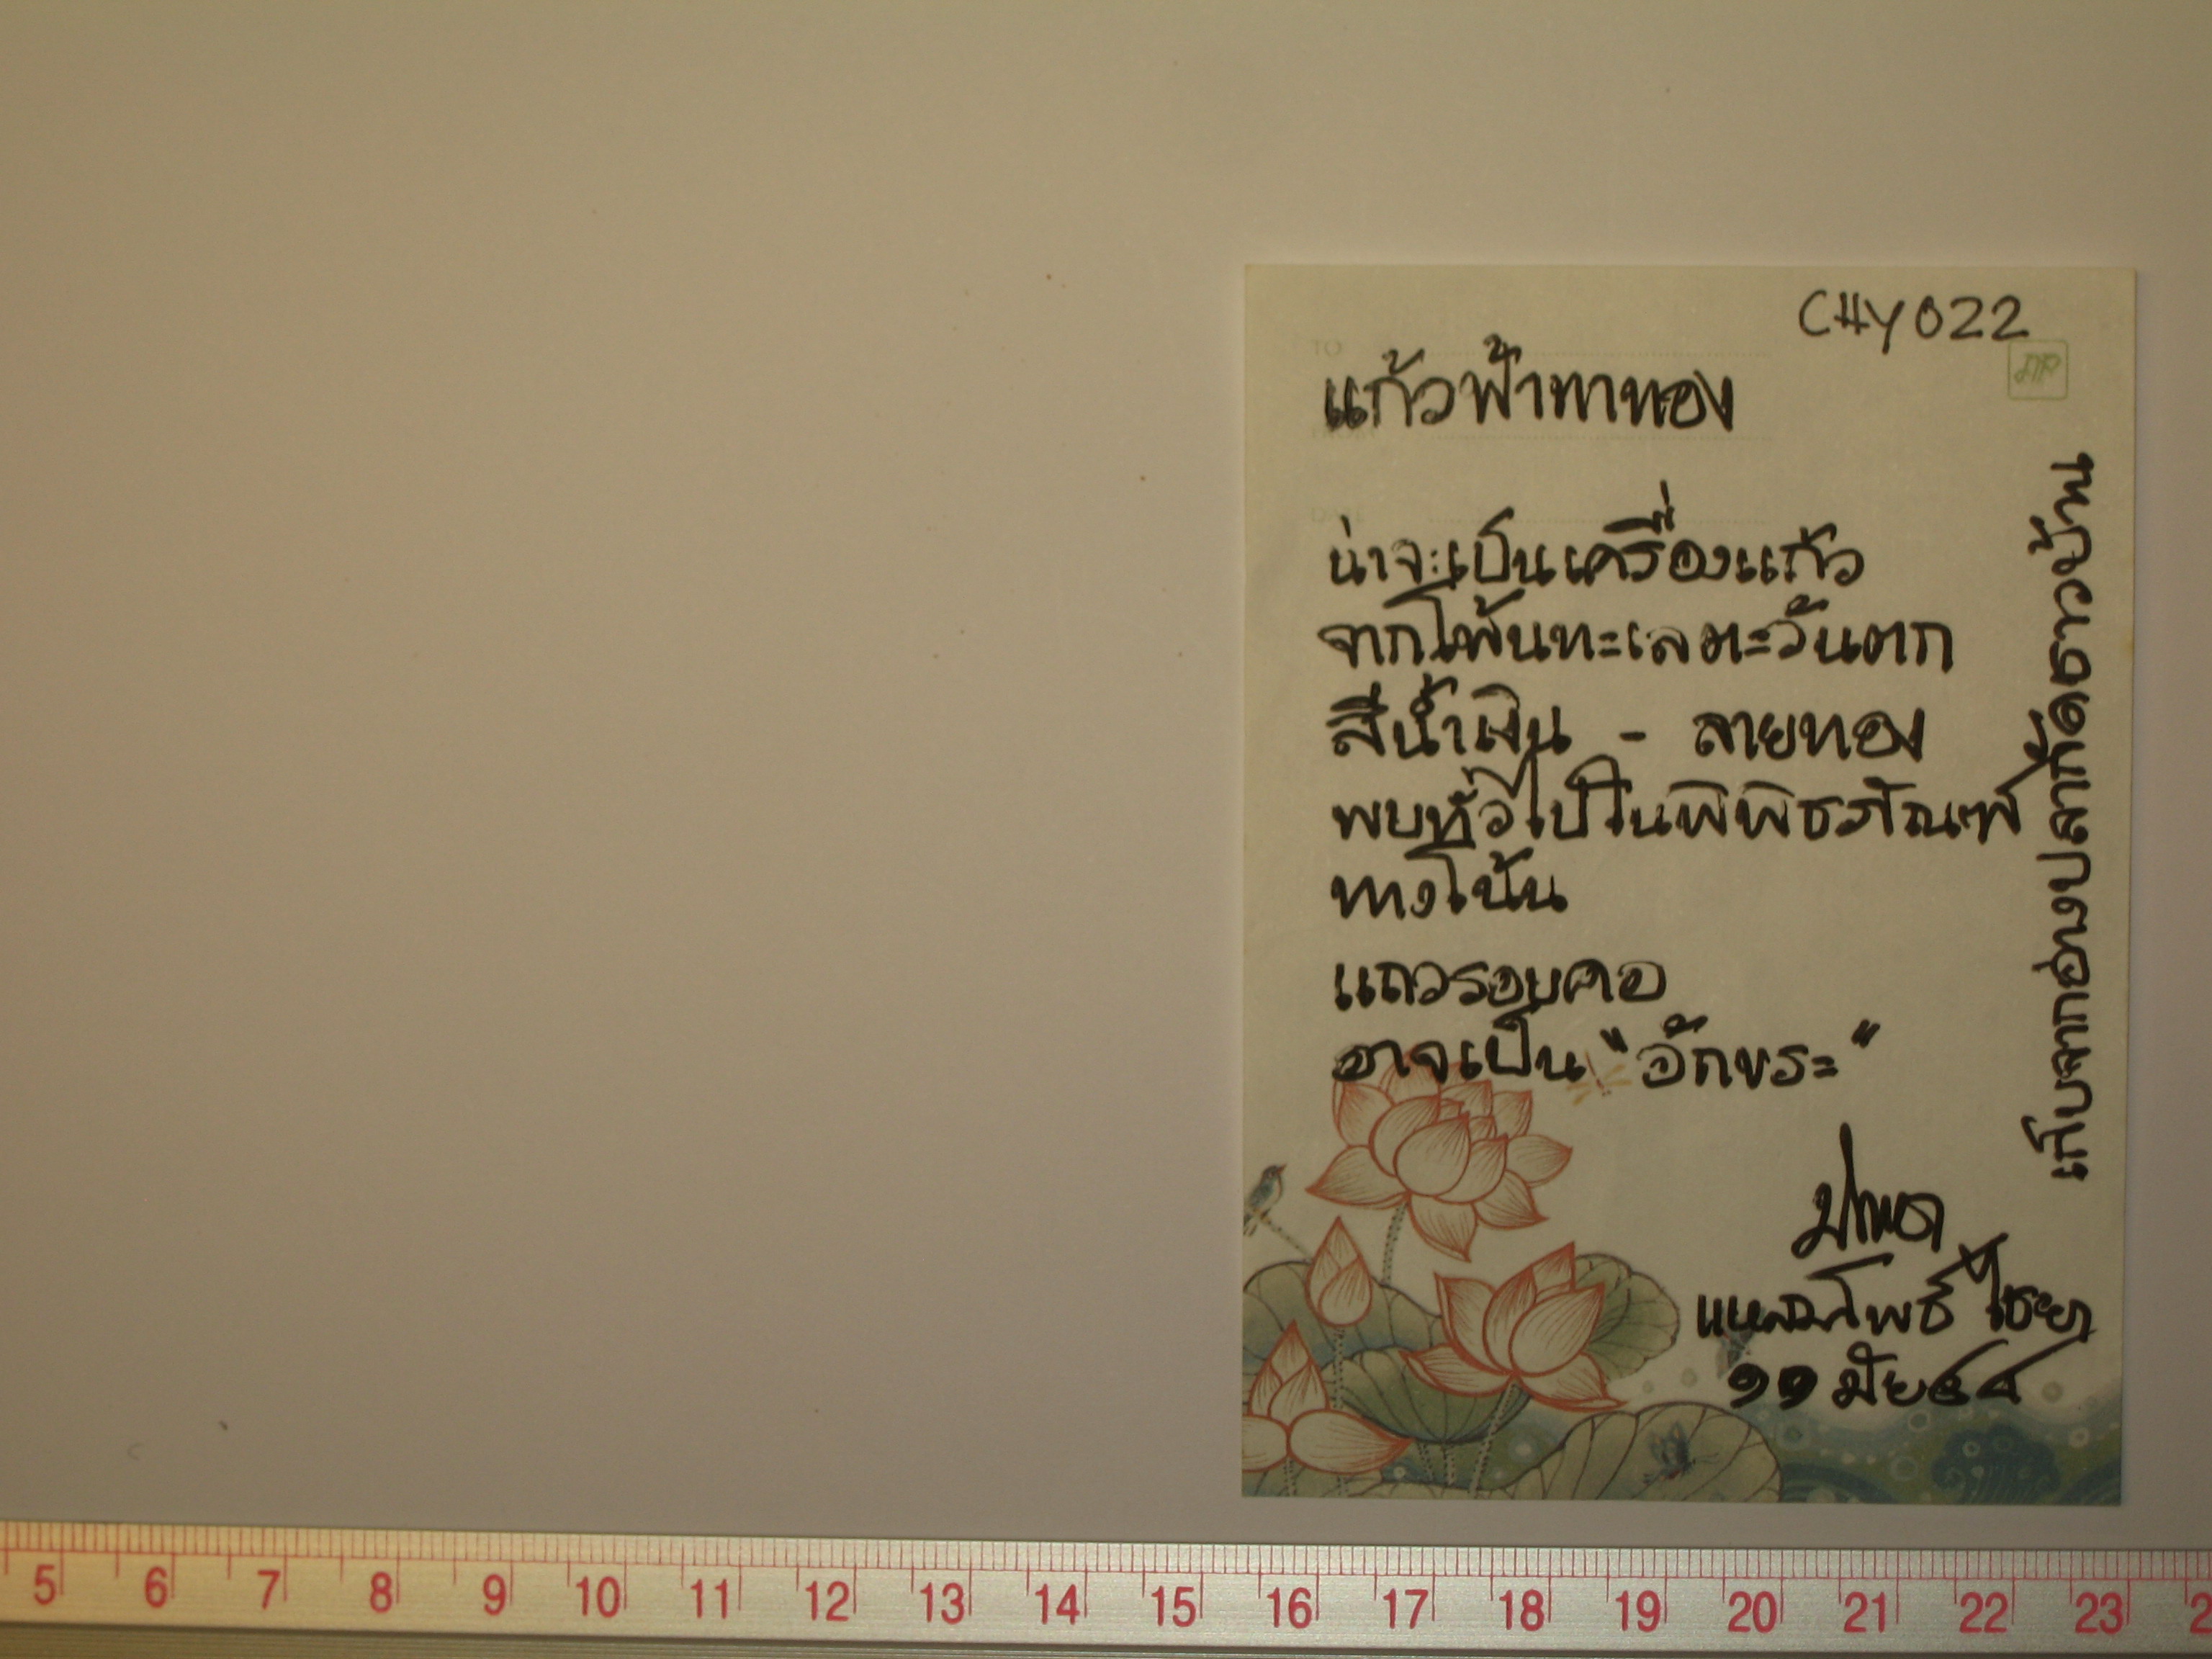 CHY022
แก้วฟ้าทาทอง
น่าจะเป็นเครื่องแก้ว
จากโพ้นทะเลตะวันตก
สีน้ำเงิน - ลายทอง
พบทั่วไปในพิพิธภัณฑ์
ทางโน้น
แถวรอบคอ
อาจเป็น "อักขระ"
แหลมโพธิ์ ไชยา
๑๑ มิย ๕๔
เก็บจากอ่างปลากัดชาวบ้าน
5 6 7 8 9 10 11 12 13 14 15 16 17 18 19 20 21 22 23